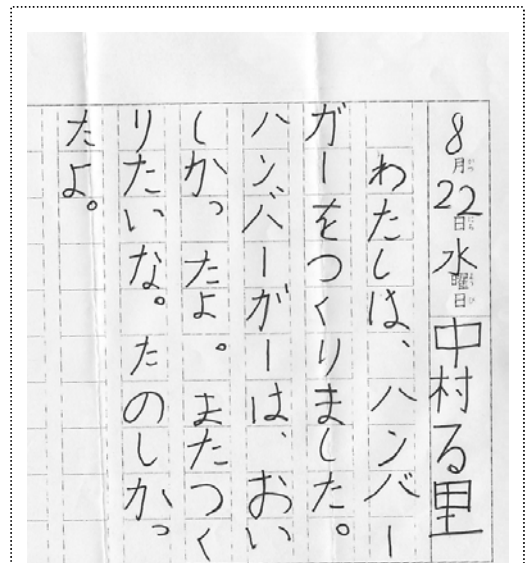 8月22日水曜日中村る里
わたしは、ハンバー
ガーをつくりました。
ハンバーガーは、おい
しかったよ。またつく
りたいな。たのしかっ
たよ。